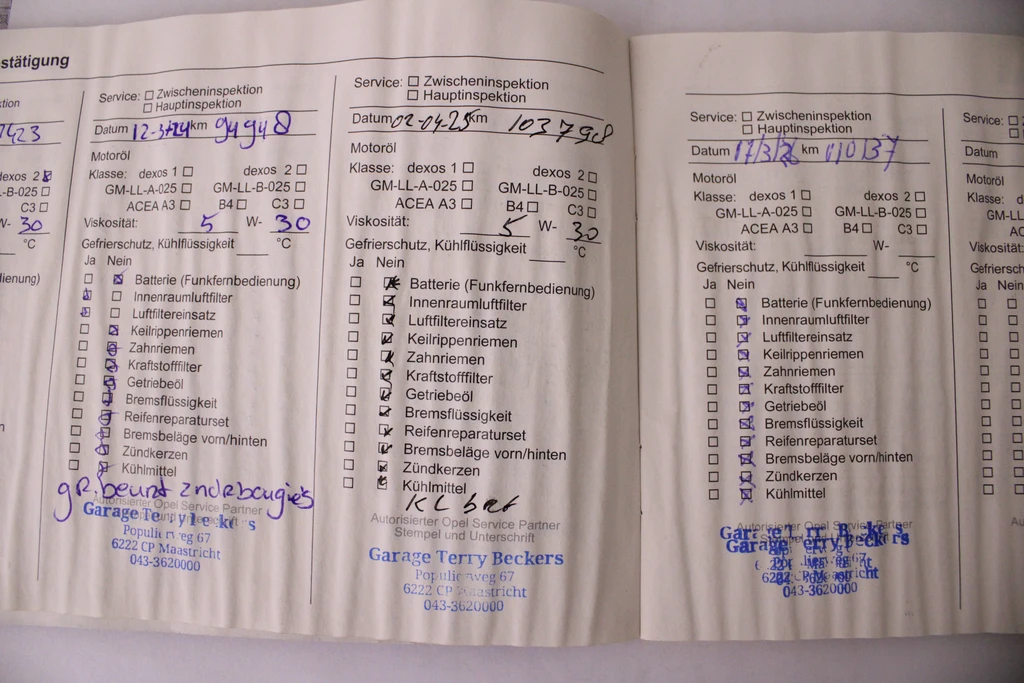 stätigung
ktion
7423
dexos 2 ☒
L-B-025 ☐
C3 ☐
W- 30
°C
dienung)
Service: ☐ Zwischeninspektion
☐ Hauptinspektion
Datum 12-3-24 km 94948
Motoröl
Klasse: dexos 1 ☐ dexos 2 ☐
GM-LL-A-025 ☐ GM-LL-B-025 ☐
ACEA A3 ☐ B4 ☐ C3 ☐
Viskosität: 5 W- 30
Gefrierschutz, Kühlflüssigkeit °C
Ja Nein
☐ ☒ Batterie (Funkfernbedienung)
☒ ☐ Innenraumluftfilter
☒ ☐ Luftfiltereinsatz
☐ ☒ Keilrippenriemen
☐ ☒ Zahnriemen
☐ ☒ Kraftstofffilter
☐ ☒ Getriebeöl
☐ ☒ Bremsflüssigkeit
☐ ☒ Reifenreparaturset
☐ ☒ Bremsbeläge vorn/hinten
☐ ☒ Zündkerzen
☐ ☒ Kühlmittel
gR. beurt
Autorisierter Opel Service Partner
Garage Terry Beckers
Populierweg 67
6222 CP Maastricht
043-3620000
Service: ☐ Zwischeninspektion
☐ Hauptinspektion
Datum 02-04-25 km 103798
Motoröl
Klasse: dexos 1 ☐ dexos 2 ☐
GM-LL-A-025 ☐ GM-LL-B-025 ☐
ACEA A3 ☐ B4 ☐ C3 ☐
Viskosität: 5 W- 30
Gefrierschutz, Kühlflüssigkeit °C
Ja Nein
☐ ☒ Batterie (Funkfernbedienung)
☐ ☒ Innenraumluftfilter
☐ ☒ Luftfiltereinsatz
☐ ☒ Keilrippenriemen
☐ ☒ Zahnriemen
☐ ☒ Kraftstofffilter
☐ ☒ Getriebeöl
☐ ☒ Bremsflüssigkeit
☐ ☒ Reifenreparaturset
☐ ☒ Bremsbeläge vorn/hinten
☐ ☒ Zündkerzen
☐ ☒ Kühlmittel
KL
Autorisierter Opel Service Partner
Stempel und Unterschrift
Garage Terry Beckers
Populierweg 67
6222 CP Maastricht
043-3620000
Service: ☐ Zwischeninspektion
☐ Hauptinspektion
Datum 17/3/26 km 110137
Motoröl
Klasse: dexos 1 ☐ dexos 2 ☐
GM-LL-A-025 ☐ GM-LL-B-025 ☐
ACEA A3 ☐ B4 ☐ C3 ☐
Viskosität: W-
Gefrierschutz, Kühlflüssigkeit °C
Ja Nein
☐ ☒ Batterie (Funkfernbedienung)
☐ ☒ Innenraumluftfilter
☐ ☒ Luftfiltereinsatz
☐ ☒ Keilrippenriemen
☐ ☒ Zahnriemen
☐ ☒ Kraftstofffilter
☐ ☒ Getriebeöl
☐ ☒ Bremsflüssigkeit
☐ ☒ Reifenreparaturset
☐ ☒ Bremsbeläge vorn/hinten
☐ ☒ Zündkerzen
☐ ☒ Kühlmittel
Autorisierter Opel Service Partner
Garage Terry Beckers
6222 CP Maastricht
043-3620000
Service: ☐
☐
Datum
Motoröl
Klasse:
GM-L
AC
Viskosität:
Gefriersch
Ja Nein